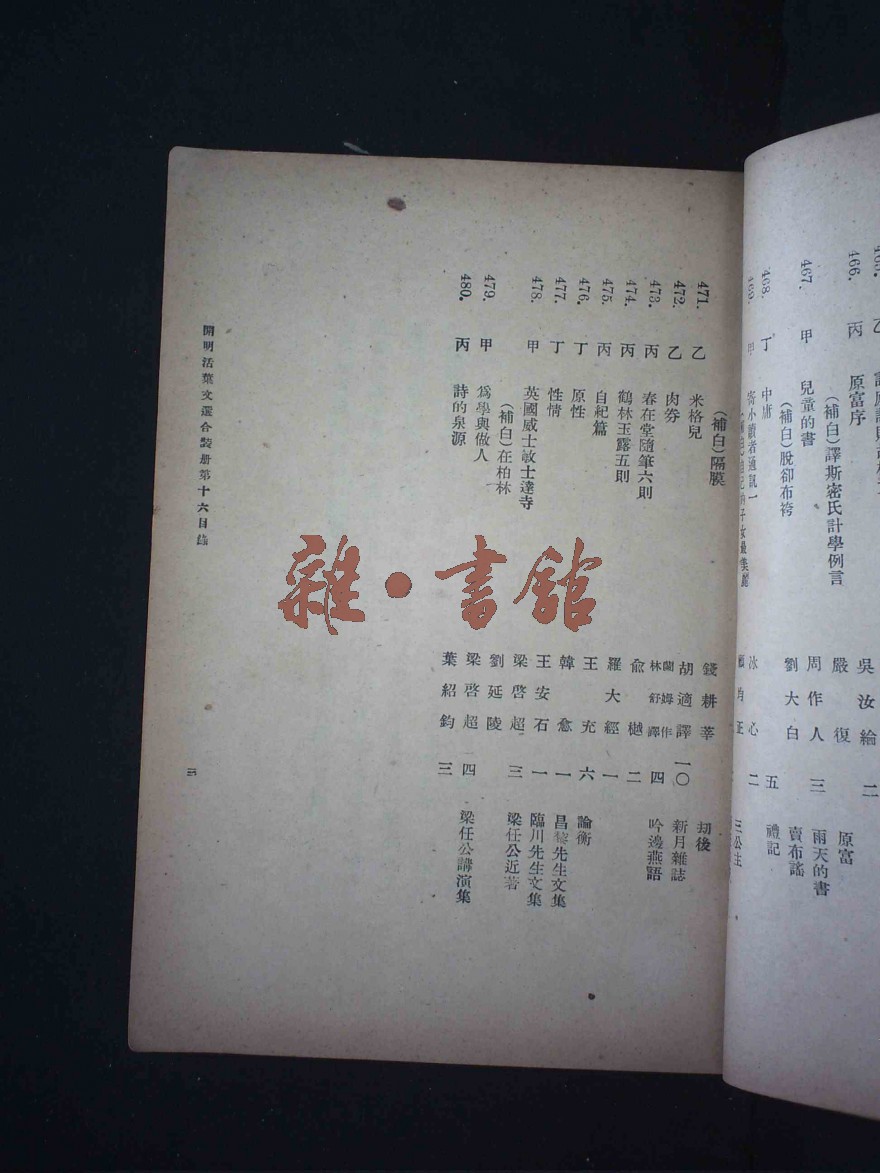 466. 丙 原富序 吳汝綸 二
(補白)譯斯密氏計學例言 嚴復 原富
467. 甲 兒童的書 周作人 三 雨天的書
(補白)脫卻布袴 劉大白 賣布謠
468. 丁 中庸 五 禮記
469. 甲 寄小讀者通訊一 冰心 二
子女最美麗 均正 三公主
(補白)隔膜 錢耕莘 劫後
471. 乙 米格兒 胡適譯 一〇 新月雜誌
472. 乙 肉券 蘭姆作 林舒譯 四 吟邊燕語
473. 丙 春在堂隨筆六則 俞樾 二
474. 丙 鶴林玉露五則 羅大經 一
475. 丙 自紀篇 王充 六 論衡
476. 丁 原性 韓愈 一 昌黎先生文集
477. 丁 性情 王安石 一 臨川先生文集
478. 甲 英國威士敏士達寺 梁啓超 三 梁任公近著
(補白)在柏林 劉延陵
479. 甲 爲學與做人 梁啓超 四 梁任公講演集
480. 丙 詩的泉源 葉紹鈞 三
開明活葉文選合裝册第十六目錄
雜·書館